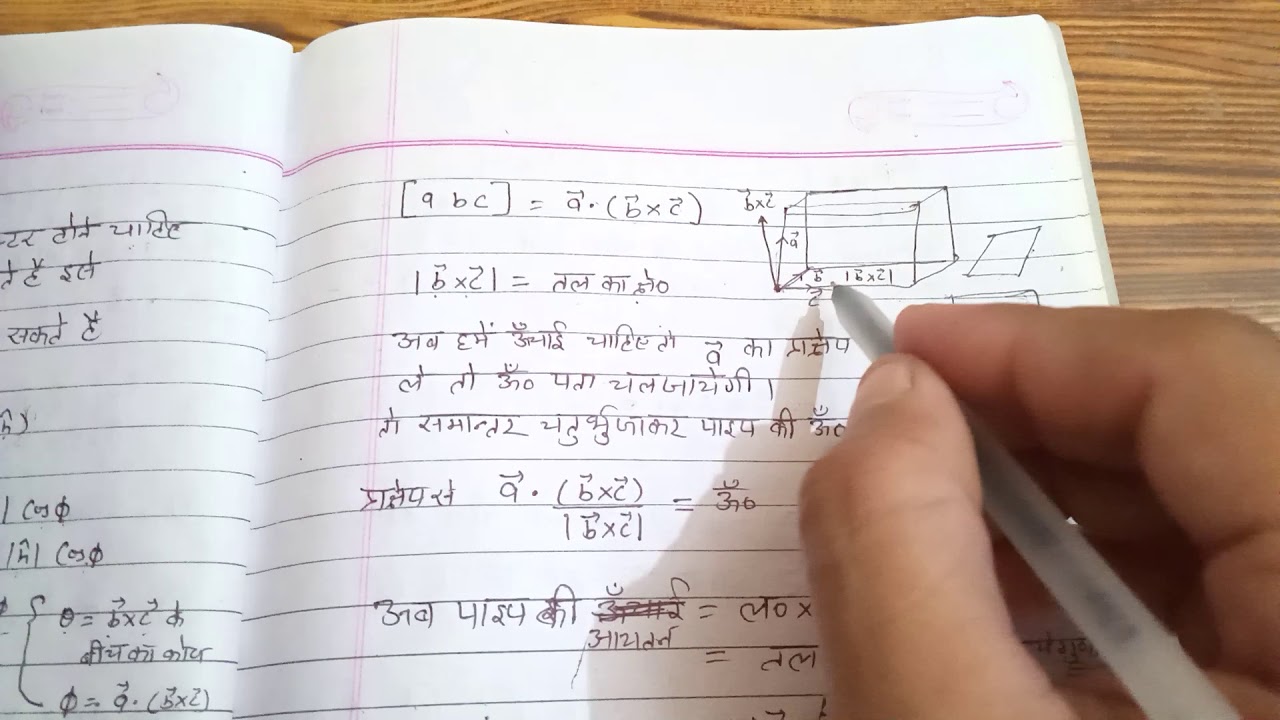 टर होने चाहिए
ते हैं इसे
सकते हैं
| cosϕ
|n̂| cosϕ
θ = b⃗×c⃗ के
बीच का कोण
ϕ = a⃗·(b⃗×c⃗)
[a b c] = a⃗·(b⃗×c⃗)
b⃗×c⃗
a⃗
b⃗ |b⃗×c⃗|
c⃗
|b⃗×c⃗| = तल का क्षे०
अब हमें ऊँचाई चाहिए तो a⃗ का प्रक्षेप
ले तो ऊँ० पता चल जायेगी।
तो समान्तर चतुर्भुजाकर पाइप की ऊँ०
प्रक्षेप से a⃗·(b⃗×c⃗)/|b⃗×c⃗| = ऊँ०
अब पाइप की आयतन = ल० ×
= तल